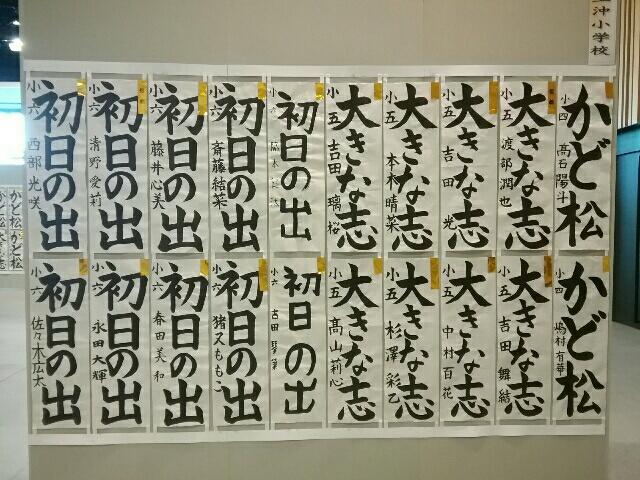 沖小学校
かど松
小四 高石陽斗
大きな志
小五 渡部潤也
大きな志
小五 吉田 光
大きな志
本木晴菜
大きな志
小五 吉田 璃桜
初日の出
小六
初日の出
小六 斎藤結菜
初日の出
小六 藤井心美
初日の出
小六 清野愛莉
初日の出
小六 西部光咲
かど松
小四 嶋村有華
大きな志
小五 吉田舞結
大きな志
小五 中村百花
大きな志
小五 杉澤彩乙
大きな志
小五 高山莉心
初日の出
小六 吉田
初日の出
小六 猪又ももこ
初日の出
小六 春田美和
初日の出
小六 永田大輝
初日の出
小六 佐々木広太